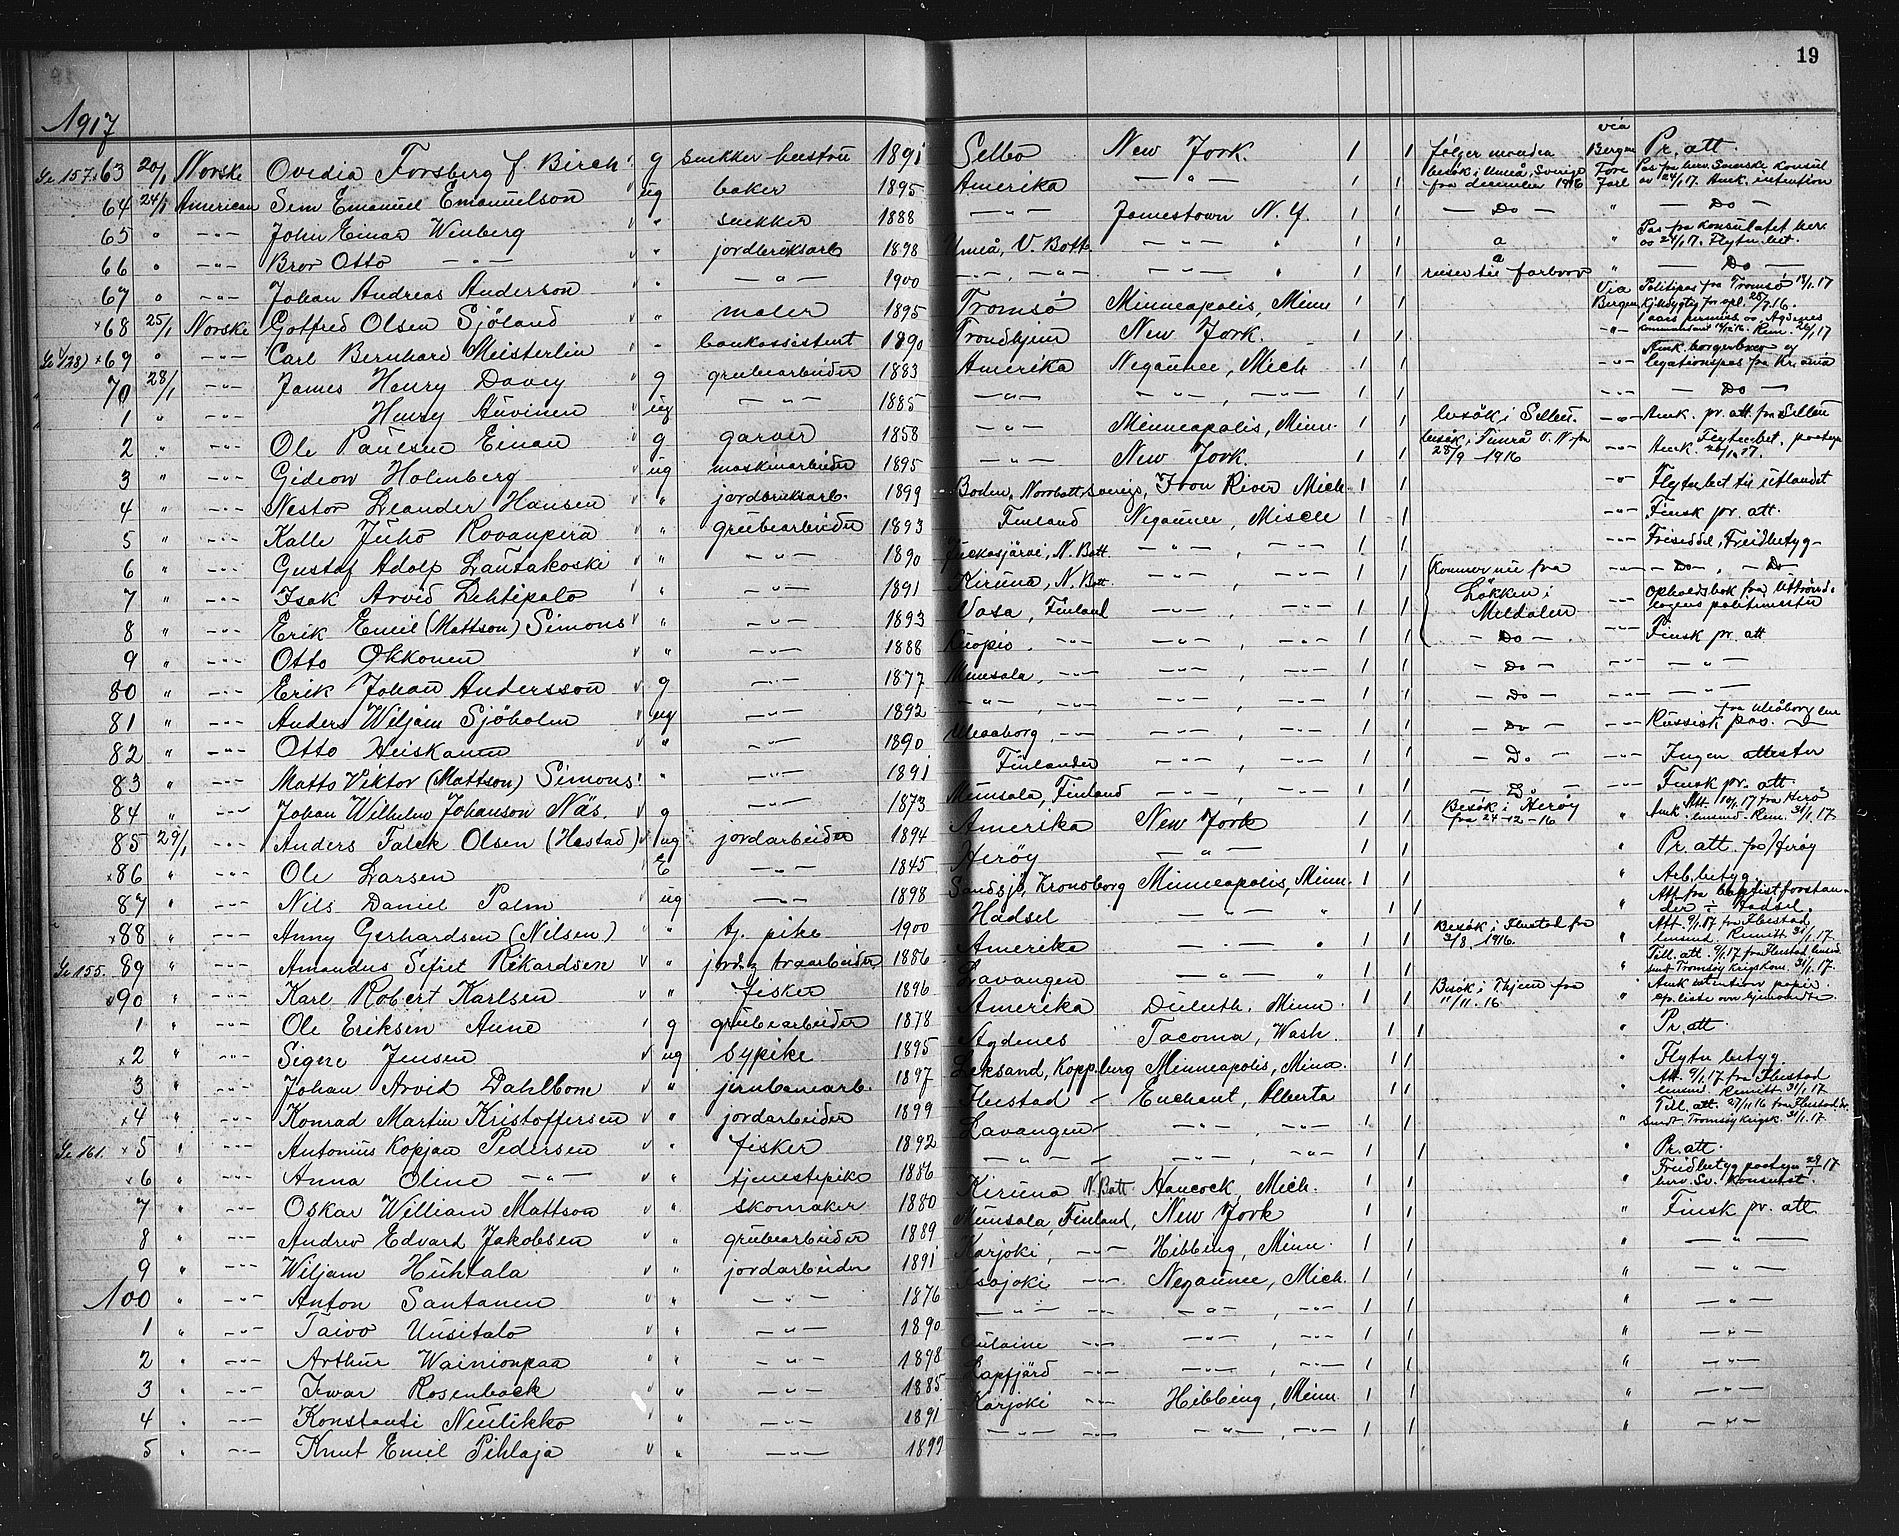 19
1917
Ge 157. x 63 20/1 Norske Ovedia Forsberg f. Birch g snekker hustru 1891 Selbo New York. 1 1 følger manden via Bergen Pr. att.
64 24/1 American Sem Emanuel Emanuelson ug baker 1895 Amerika — " — 1 1 besök i Umeå, Sverige fra december 1916 Tore Jarl Pas fra herv. Svenske konsul av 24/1 17. Amk. intention
65 " — " — John Einar Winberg " snekker 1888 — " — Jamestown N. Y. 1 1 — Do — " — Do —
66 " — " — Bror Otto — " — " jordbruksarb 1898 Umeå, V. Bott — " — " 1 1 " " Pas fra konsulatet her. av 24/1 17. Flytn. bet.
67 " — " — Johan Andreas Anderson " — " — 1900 — " — , — " — — " — " 1 1 reiser til farbror " — Do —
x 68 25/1 Norske Gotfred Olsen Sjöland " maler 1895 Tromsö Minneapolis, Minn 1 1 Via Bergen Politipas fra Tromsö 18/1 17
x 69 " — " — Carl Bernhard Meisterlin " bankassistent 1890 Trondhjem New York. 1 1 — " —
70 28/1 — " — James Henry Davey g grubearbeider 1883 Amerika Negaunee, Mich 1 1 — " — Amk. borgerbrev og legationspas fra Kr.ania
1 " — " — Henry Auvinen ug — " — 1885 — " — — " — , — " — 1 1 — " — — Do —
2 " — " — Ole Paulsen Einan g garver 1858 — " — Minneapolis, Minn. 1 1 besök i Selbu. — " — Amk. pr. att. fra Selbu
3 " — " — Gideon Holmberg ug maskinarbeider 1895 — " — New York. 1 1 besök i Timrå V. N. fra 28/9 - 1916 — " — Amk. Flytn. bet.
4 " — " — Nestor Leander Hansen " jordbruksarb. 1899 Boden, Norrbott, Sverige, Iron River Mich. 1 1 — " — Flytn. bet til utlandet
5 " — " — Kalle Juho Rovanpera " grubearbeider 1893 Finland Negaunee, Misch 1 1 — " — Finsk pr. att.
6 " — " — Gustaf Adolf Lautakoski " — " — 1890 Jukkasjärvi, N. Bott. — " — , — " — 1 1 — " — Friseddel, Freidbetyg
7 " — " — Isak Arvid Lehtipalo " — " — 1891 Kiruna, N. Bott — " — , — " — 1 1 Kommer nu fra — " — — Do — , — Do —
8 " — " — Erik Emil (Mattson) Simons " — " — 1893 Vasa, Finland — " — , — " — 1 1 Løkken i Meldalen — " — Opholdsbok fra Uttrønd. lagens politimester
9 " — " — Otto Okkonen " — " — 1888 Kuopio. — " — — " — , — " — 1 1 — Do — — " — Finsk pr. att
80 " — " — Erik Johan Andersson g — " — 1877 Munsala, — " — — " — , — " — 1 1 — Do — — " — — " —
81 " — " — Anders Wiljam Sjöholm ug — " — 1892 — " — , — " — — " — , — " — 1 1 — Do — — " — — " —
82 " — " — Otto Heiskanen " — " — 1890 Uleaborg, — " — — " — , — " — 1 1 — Do — — " — Russisk pas.
83 " — " — Matts Viktor (Mattson) Simons " — " — 1891 Finlander — " — , — " — 1 1 — Do — — " — Ingen attester
84 " — " — Johan Wilhelm Johanson Näs. g — " — 1873 Munsala, Finland — " — , — " — 1 1 — Do — — " — Finsk pr. att.
85 29/1 — " — Anders Falck Olsen (Hestad) ug jordarbeider 1894 Amerika New York 1 1 Besök i Herøy fra 24-12-16 " Att. 19/1 17 fra Herø
x 86 " — " — Ole Larsen E — " — 1845 Herøy — " — 1 1 " Pr. att. fra Herøy
87 " — " — Nils Daniel Palm ug — " — 1898 Sandsjö, Kronoborg Minneapolis, Minn. 1 1 " Arb. betyg.
x 88 " — " — Anny Gerhardsen (Nilsen) " tj. pike 1900 Hadsel — " — " 1 1 " Att. fra baptistforstan- der i Hadsel.
Ge 155. 89 " — " — Amandus Sefret Rikardsen " jord. & træarbeider 1886 Amerika — " — " 1 1 Besök i Ibestad fra 3/8. 1916. " Att. 9/1 17 fra Ibestad
x 90 " — " — Karl Robert Karlsen " fisker 1896 Lavangen — " — " 1 1 " Till. att. 9/1 17 fra Ibestad
1 " — " — Ole Eriksen Aune g grubearbeider 1878 Amerika Duluth, Minn. 1 1 Besök i Thjem fra 11/11. 16. " Amk intention papir.
x 2 " — " — Signe Jensen ug sypike 1895 Agdenes Tacoma, Wash. 1 1 " Pr. att.
3 " — " — Johan Arvid Dahlbom " jernbanearb. 1897 Leksand, Koppberg Minneapolis, Minn. 1 1 " Flytn betyg.
x 4 " — " — Konrad Martin Kristoffersen " jordarbeider 1899 Ibestad — Enchant, Alberta 1 1 Att. 9/1 17 fra Ibestad
Ge 161. x 5 " — " — Antonius Kopjan Pedersen " fisker 1892 Lavangen — — " — , — " — 1 1 " Till. att. 27/11 16 fra Ibestad
x 6 " — " — Anna Oline — " — " tjenestepike 1886 — " — — — " — , — " — 1 1 " Pr. att.
7 " — " — Oskar William Mattson " skomaker 1880 Kiruna N. Bott Hancock, Mich. 1 1 " Freidbetyg
8 " — " — Andrev Edvard Jakobsen " grubearbeider 1889 Munsala, Finland, New York 1 1 " Finsk pr. att.
9 " — " — Wiljam Huhtala " jordarbeider 1891 Karjoki, — " — Hibbing, Minn. 1 1 " — " —
100 " — " — Anton Santanen " — " — 1876 Isojoki — " — Negaunee, Mich. 1 1 " — " —
1 " — " — Taivo Uusitalo " — " — 1890 — " — — " — — " — , — " — 1 1 " — " —
2 " — " — Arthur Wainionpaa " — " — 1898 — " — — " — , — " — 1 1 " — " —
3 " — " — Ivar Rosenback " — " — 1885 Lapfjärd — " — — " — , — " — 1 1 " — " —
4 " — " — Konstanti Neulikko " — " — 1891 Karjoki — " — Hibbing, Minn. 1 1 " — " —
5 " — " — Knut Emil Pihlaja " — " — 1899 — " — — " — — " — , — " — 1 1 " — " —